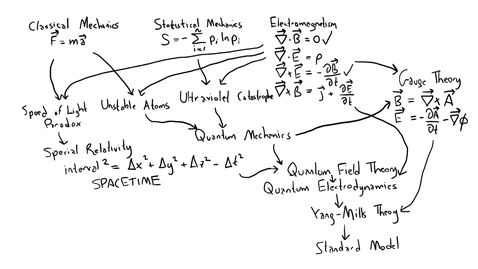 Classical Mechanics
F⃗ = ma⃗
Statistical Mechanics
S = - Σ_{i=1}^{n} p_i ln p_i
Electromagnetism
∇⃗ · B⃗ = 0 ✓
∇⃗ · E⃗ = ρ
∇⃗ × E⃗ = - ∂B⃗/∂t ✓
∇⃗ × B⃗ = j⃗ + ∂E⃗/∂t
Gauge Theory
B⃗ = ∇⃗ × A⃗
E⃗ = - ∂A⃗/∂t - ∇⃗ϕ
Speed of Light
Paradox
Unstable Atoms
Ultraviolet Catastrophe
Quantum Mechanics
Special Relativity
interval² = Δx² + Δy² + Δz² - Δt²
SPACETIME
Quantum Field Theory
Quantum Electrodynamics
Yang-Mills Theory
Standard Model